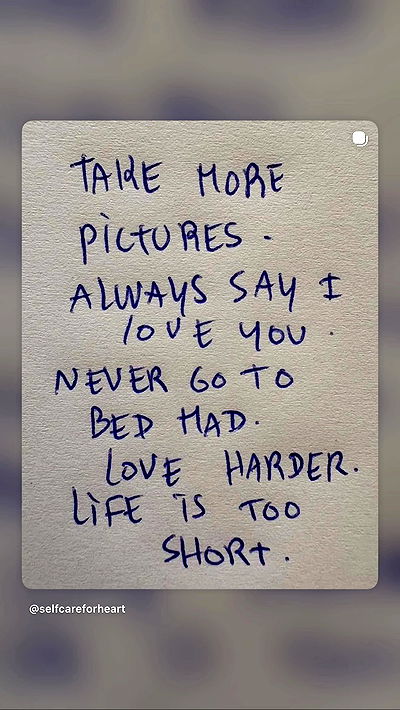 TAKE MORE
PiCTURES.
ALWAYS SAY I
lOVE YOU.
NEVER GO TO
BED MAD.
LOVE HARDER.
LiFE iS TOO
SHORt.
@selfcareforheart